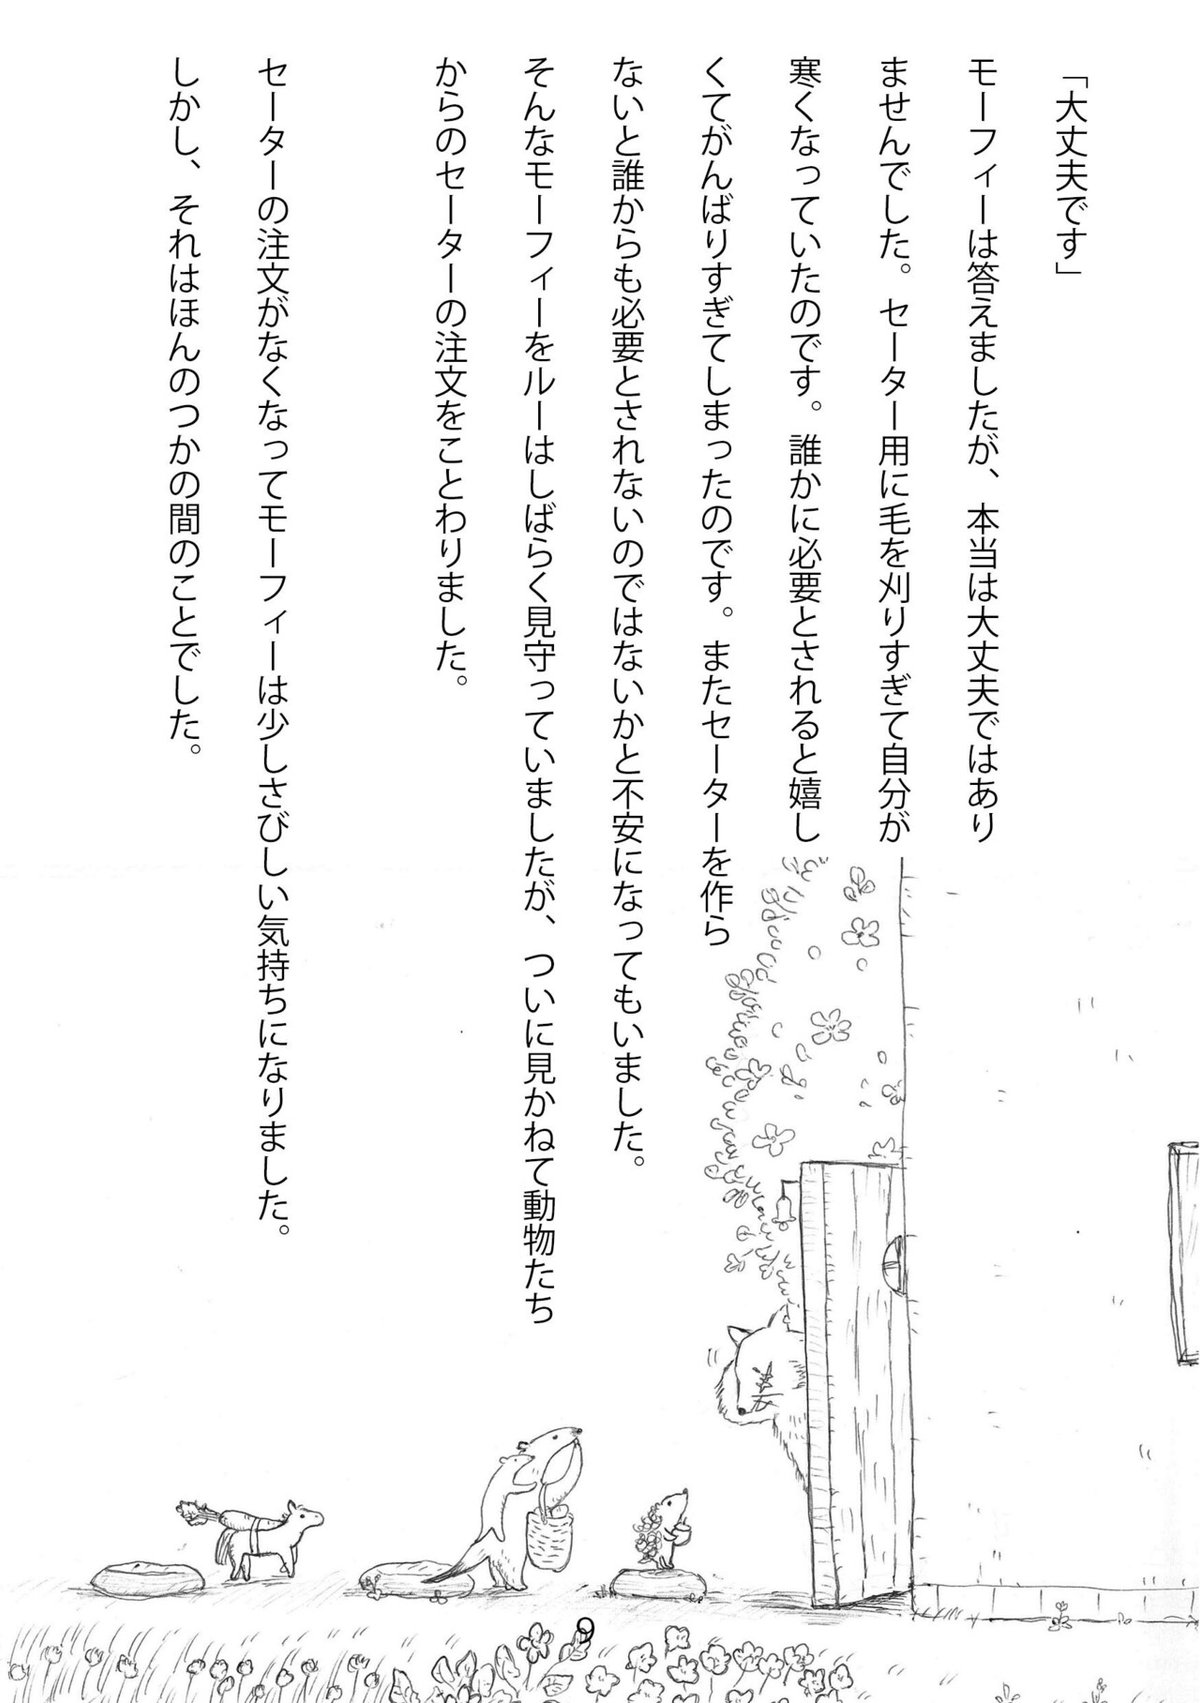 「大丈夫です」
モーフィーは答えましたが、本当は大丈夫ではあり
ませんでした。セーター用に毛を刈りすぎて自分が
寒くなっていたのです。誰かに必要とされると嬉し
くてがんばりすぎてしまったのです。またセーターを作ら
ないと誰からも必要とされないのではないかと不安になってもいました。
そんなモーフィーをルーはしばらく見守っていましたが、ついに見かねて動物たち
からのセーターの注文をことわりました。
セーターの注文がなくなってモーフィーは少しさびしい気持ちになりました。
しかし、それはほんのつかの間のことでした。
9